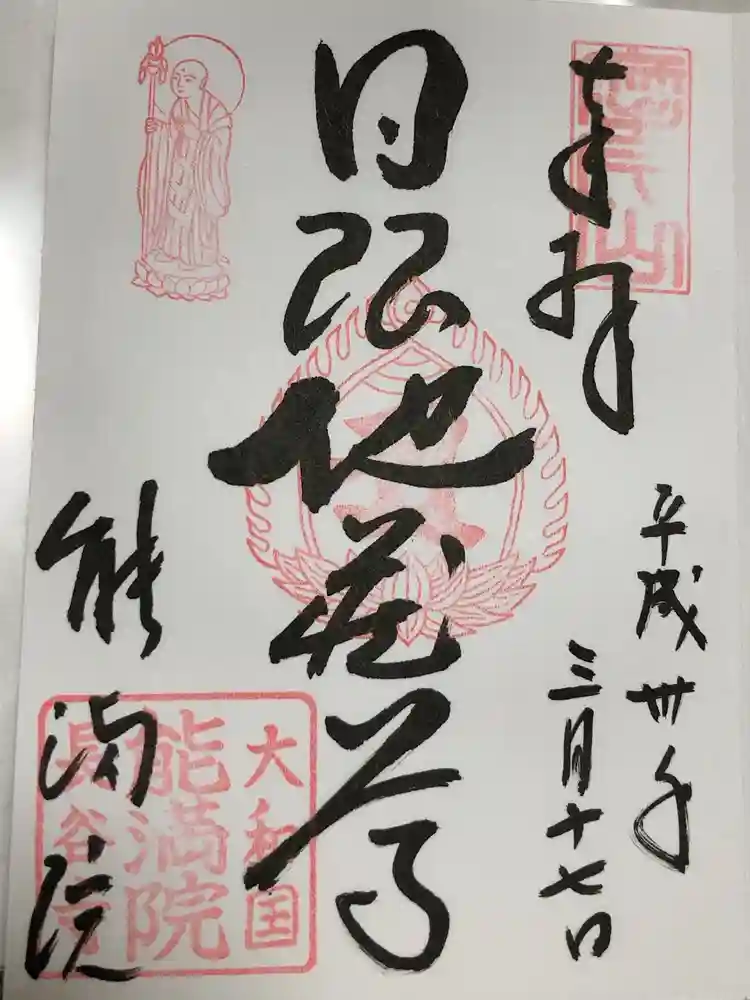 奉拝
平成卅年
三月十七日
日限地蔵尊
能満院
大和国
能満院
長谷寺